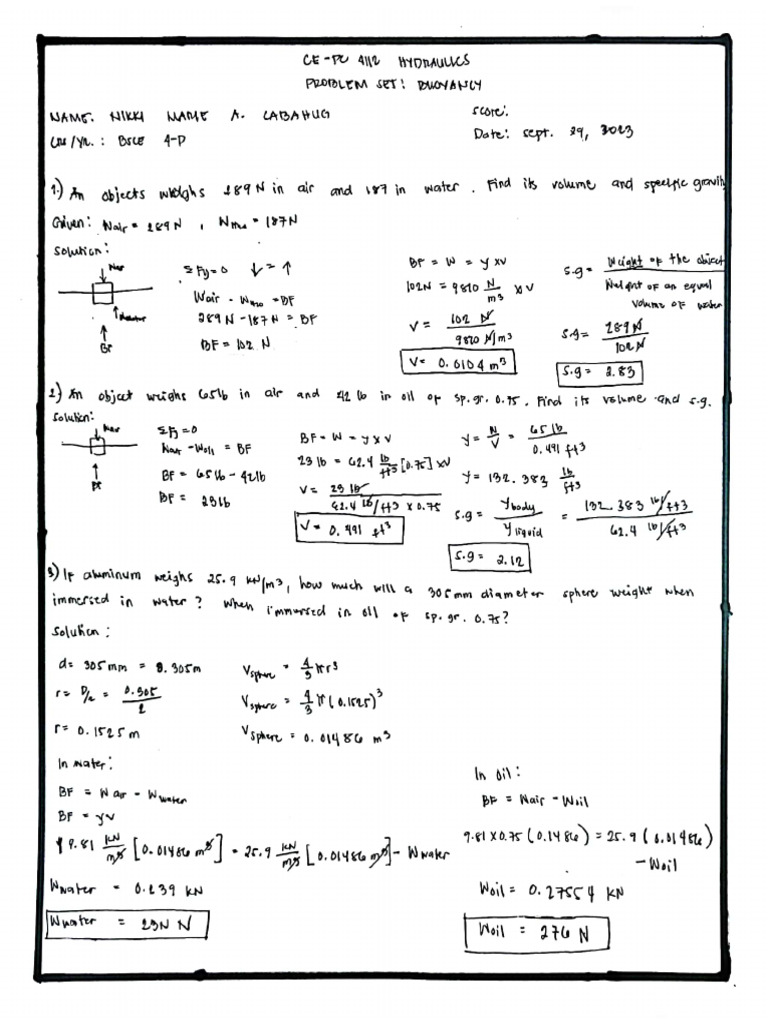 CE-PC 4112 HYDRAULICS
PROBLEM SET: BUOYANCY
NAME: NIKKI NAME A. LABAHUG
Score:
CRS/YR.: BSCE 4-D
Date: Sept. 29, 2023
1.) An objects weighs 289 N in air and 187 in water. Find its volume and specific gravity
Given: Wair = 289 N , WH2O = 187N
Solution:
War
Wwater
BF
ΣFy=0 ↓=↑
Wair - WH2O = BF
289 N - 187 N = BF
BF = 102 N
BF = W = γ x V
102N = 9810 N/m3 x V
V = 102 N / 9810 N/m3
V = 0.0104 m3
S.g = Weight of the object / Weight of an equal volume of water
S.g = 289 N / 102 N
S.g = 2.83
2.) An object weighs 65 lb in air and 42 lb in oil of sp.gr. 0.75. Find its volume and s.g.
Solution:
War
BF
ΣFy=0
Wair - Woil = BF
BF = 65 lb - 42 lb
BF = 23 lb
BF = W = γ x V
23 lb = 62.4 lb/ft3 [0.75] x V
V = 23 lb / 62.4 lb/ft3 x 0.75
V = 0.491 ft3
γ = N/V = 65 lb / 0.491 ft3
γ = 132.383 lb/ft3
S.g = γbody / γliquid = 132.383 lb/ft3 / 62.4 lb/ft3
S.g = 2.12
3) If aluminum weighs 25.9 kN/m3, how much will a 305 mm diameter sphere weight when
immersed in water? When immersed in oil of sp. gr. 0.75?
Solution:
d = 305 mm = 0.305 m
r = D/2 = 0.305 / 2
r = 0.1525 m
Vsphere = 4/3 πr3
Vsphere = 4/3 π(0.1525)3
Vsphere = 0.01486 m3
In water:
BF = Wair - Wwater
BF = γV
9.81 kN/m3 [0.01486 m3] = 25.9 kN/m3 [0.01486 m3] - Wwater
Wwater = 0.239 kN
Wwater = 23N N
In oil:
BF = Wair - Woil
9.81 x 0.75 (0.1486) = 25.9 (0.01486)
- Woil
Woil = 0.27554 kN
Woil = 276 N